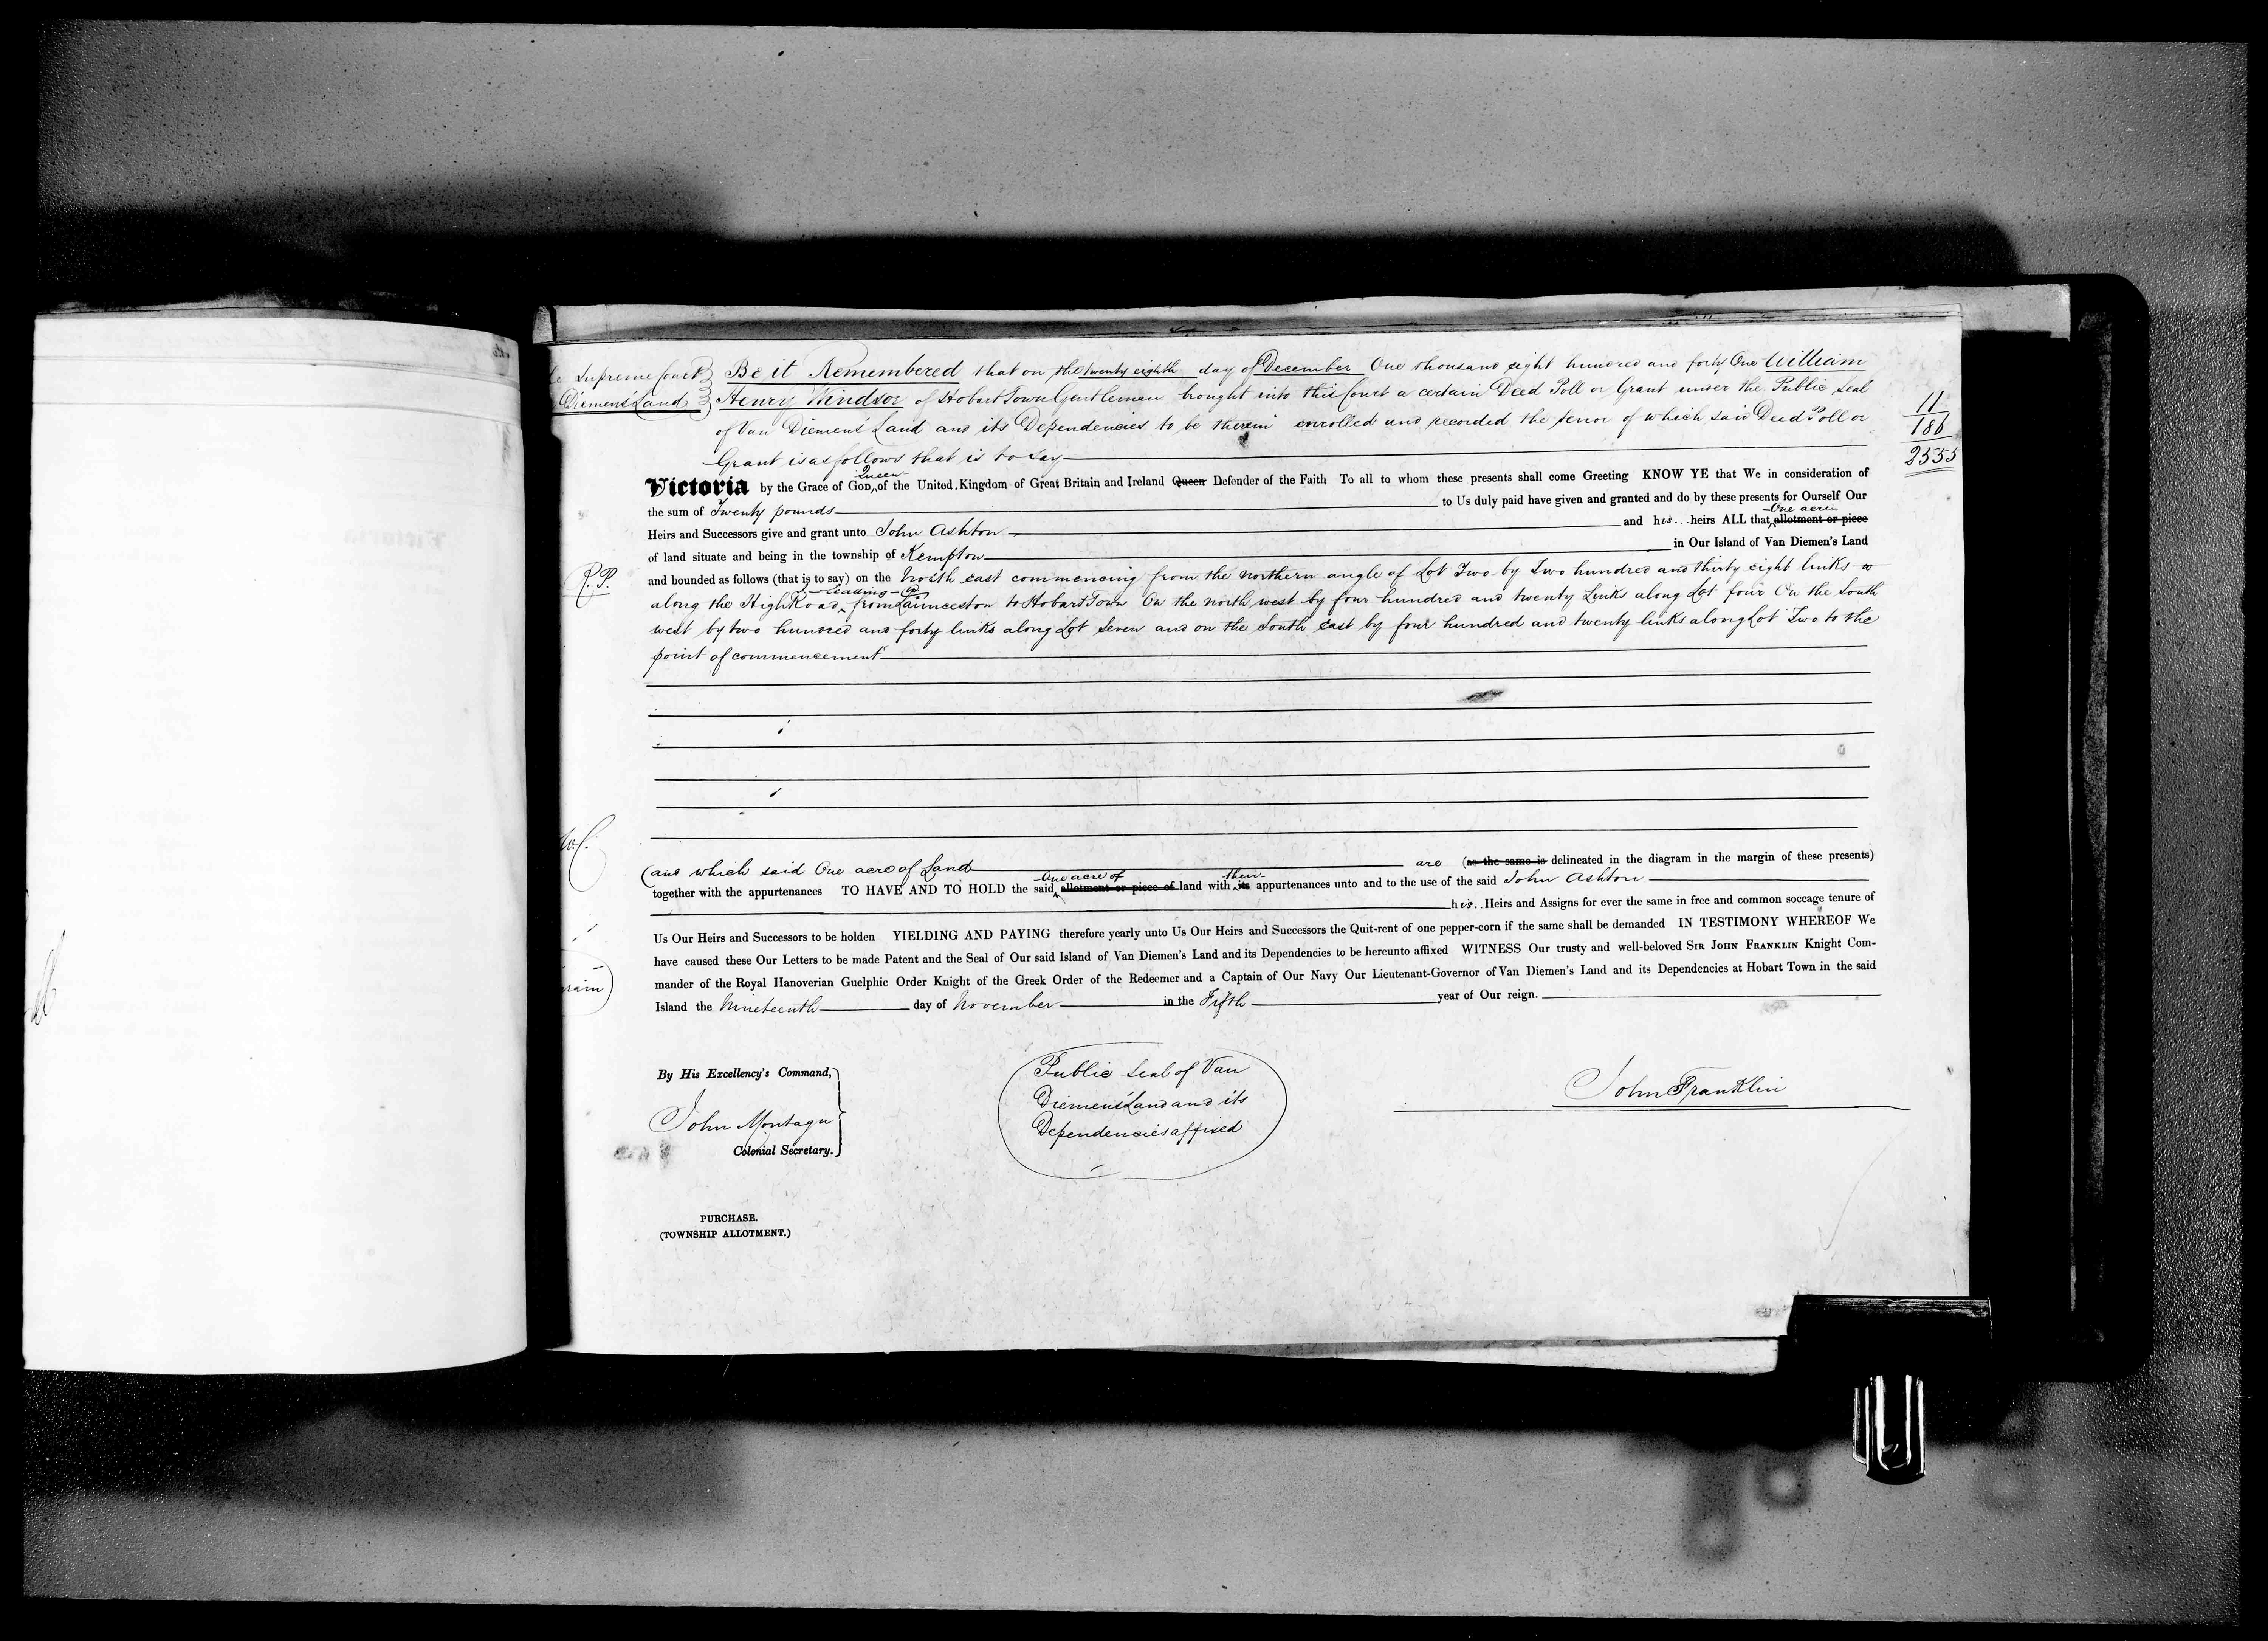 Supreme Court Be it Remembered that on the twenty eighth day of December One thousand eight hundred and forty One William
Diemen's Land Henry Windsor of Hobart Town Gentleman brought into this Court a certain Deed Poll or Grant under the Public Seal
of Van Diemen's Land and its Dependencies to be therein enrolled and recorded the tenor of which said Deed Poll or
Grant is as follows that is to say
11
186
2555
Queen
Victoria by the Grace of God, of the United Kingdom of Great Britain and Ireland Queen Defender of the Faith To all to whom these presents shall come Greeting KNOW YE that We in consideration of
the sum of Twenty pounds to Us duly paid have given and granted and do by these presents for Ourself Our
One acre
Heirs and Successors give and grant unto John Ashton and his heirs ALL that allotment or piece
of land situate and being in the township of Kempton in Our Island of Van Diemen's Land
R.P.
and bounded as follows (that is to say) on the North east commencing from the northern angle of Lot Two by Two hundred and thirty eight links
leading
along the High Road from Launceston to Hobart Town On the north west by four hundred and twenty Links along Lot four On the South
west by two hundred and forty links along Lot Seven and on the South east by four hundred and twenty links along Lot Two to the
point of commencement
(and which said One acre of Land are (as the same is delineated in the diagram in the margin of these presents)
One acre of their
together with the appurtenances TO HAVE AND TO HOLD the said allotment or piece of land with its appurtenances unto and to the use of the said John Ashton
his Heirs and Assigns for ever the same in free and common soccage tenure of
Us Our Heirs and Successors to be holden YIELDING AND PAYING therefore yearly unto Us Our Heirs and Successors the Quit-rent of one pepper-corn if the same shall be demanded IN TESTIMONY WHEREOF We
have caused these Our Letters to be made Patent and the Seal of Our said Island of Van Diemen's Land and its Dependencies to be hereunto affixed WITNESS Our trusty and well-beloved SIR JOHN FRANKLIN Knight Com-
mander of the Royal Hanoverian Guelphic Order Knight of the Greek Order of the Redeemer and a Captain of Our Navy Our Lieutenant-Governor of Van Diemen's Land and its Dependencies at Hobart Town in the said
Island the Nineteenth day of November in the Fifth year of Our reign.
By His Excellency's Command,
John Montagu
Colonial Secretary.
Public Seal of Van
Diemen's Land and its
Dependencies affixed
John Franklin
PURCHASE.
(TOWNSHIP ALLOTMENT.)